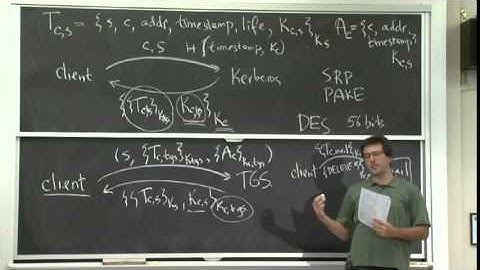 T_{c,s} = { s, c, addr, timestamp, life, K_{c,s} }_{K_s}
A_c = { c, addr, timestamp }_{K_{c,s}}
c, s H(timestamp, K_c)
client Kerberos
SRP
PAKE
K_c
DES 56 bits
(s, {T_{c,tgs}}_{K_{tgs}}, {A_c}_{K_{c,tgs}})
client TGS
{{T_{c,s}}_{K_s}, K_{c,s}}_{K_{c,tgs}}
client {DELETE 5}